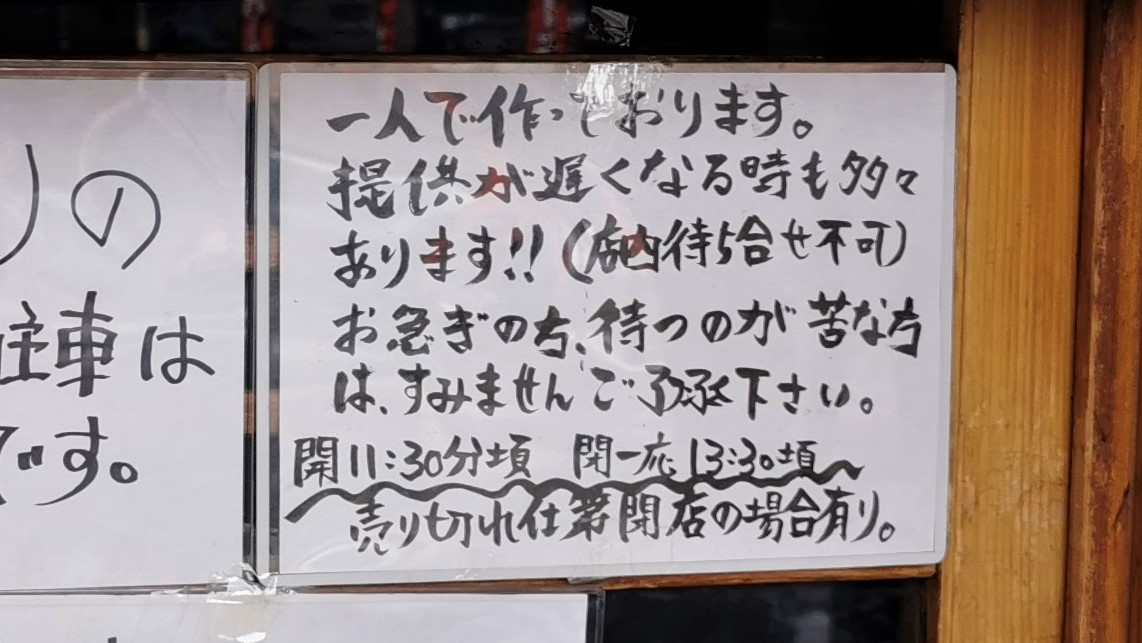 の
駐車は
です。
一人で作っております。
提供が遅くなる時も多々
あります!!(店内待ち合せ不可)
お急ぎの方、待つのが苦な方
は、すみませんご了承下さい。
開11:30分頃 閉一応13:30頃〜
売り切れ仕第閉店の場合有り。